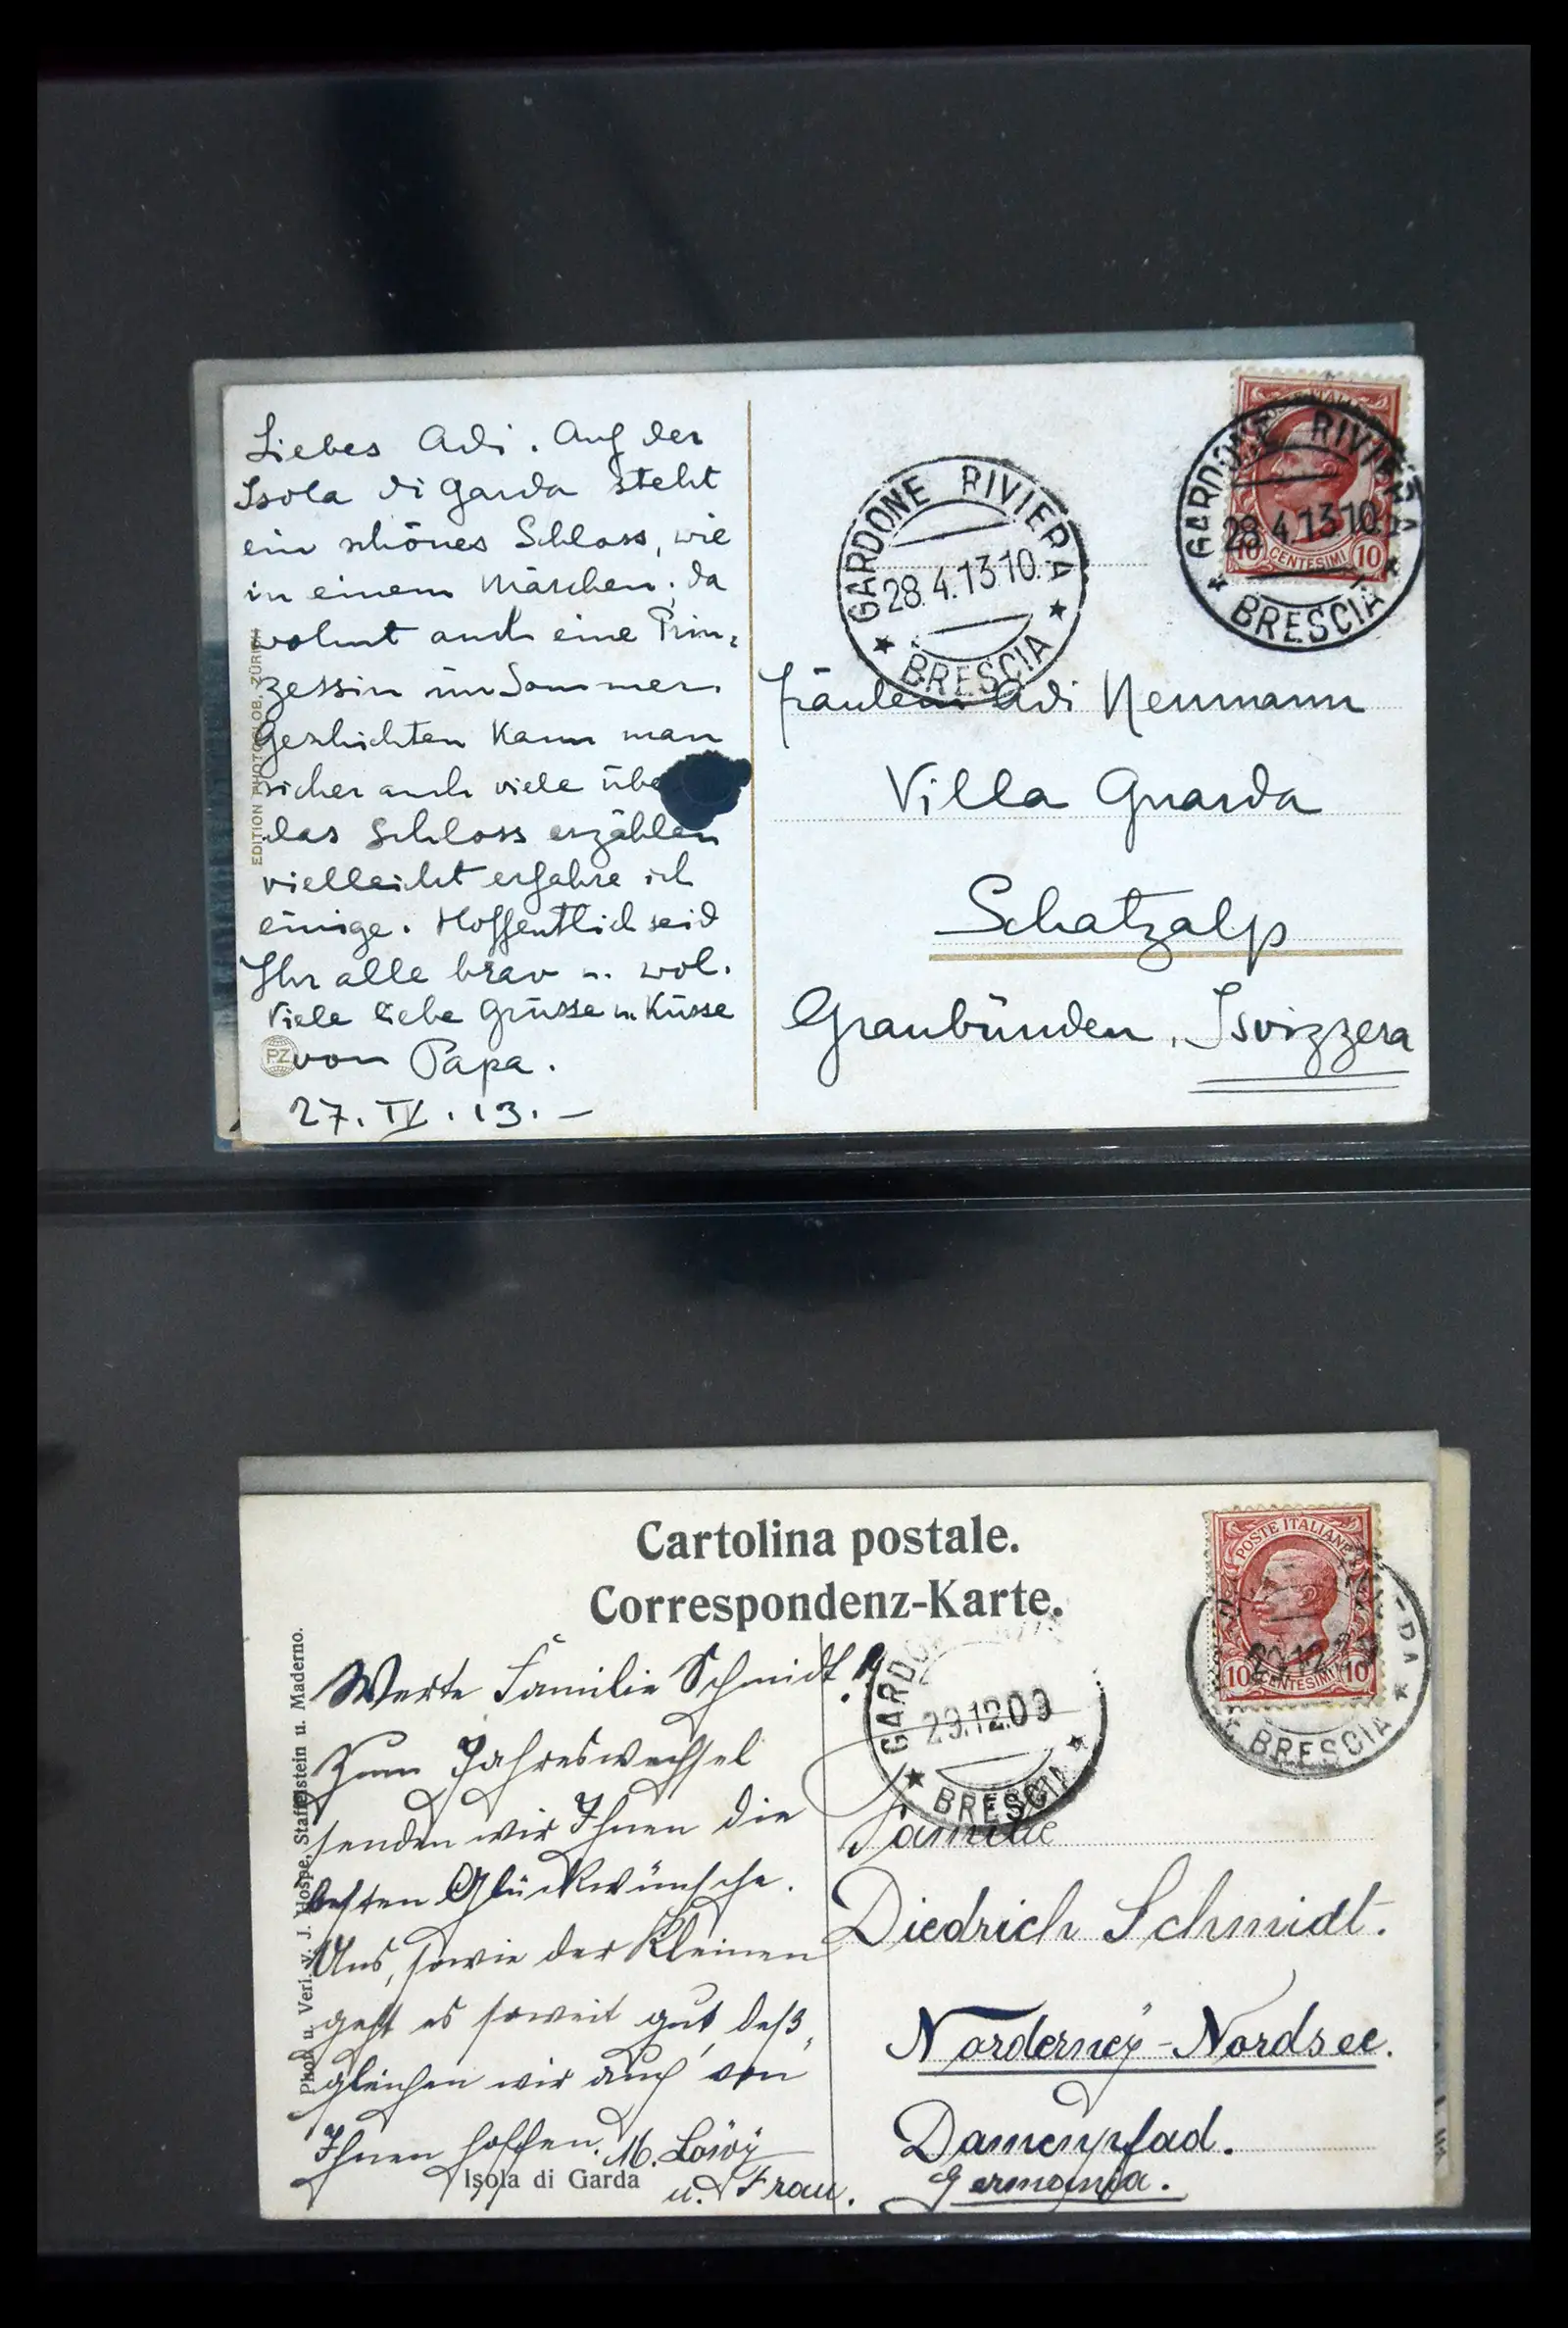 Liebes Adi. Auf der
Isola di Garda steht
ein schönes Schloss, wie
in einem Märchen, da
wohnt auch eine Prin-
zessin im Sommer.
Geschichten kann man
sicher auch viele übe
das Schloss erzählen
vielleicht erfahre ich
einige. Hoffentlich seid
Ihr alle brav u. wol.
Viele liebe Grüsse u. Küsse
von Papa.
27. IV. 13. –
EDITION PHOTOGLOB. ZÜRICH
PZ
GARDONE RIVIERA
28.4.13 10.
BRESCIA
POSTE ITALIANE
10 CENTESIMI 10
GARDONE RIVIERA
28.4.13 10.
BRESCIA
Fräulein Adi Neumann
Villa Guarda
Schatzalp
Graubünden, Svizzera
Cartolina postale.
Correspondenz-Karte.
Phot. u. Verl. v. J. Hospe, Staffelstein u. Maderno.
Werte Familie Schmidt!
Zum Jahreswechsel
senden wir Ihnen die
besten Glückwünsche.
Uns, sowie der Kleinen
geht es soweit gut, deß-
gleichen wir auch von
Ihnen hoffen. M. Löwy
u. Frau.
Isola di Garda
GARDO
29.12.09
BRESCIA
POSTE ITALIANE
10 CENTESIMI 10
BRESCIA
Familie
Diedrich Schmidt.
Norderney-Nordsee.
Damenpfad.
Germania.